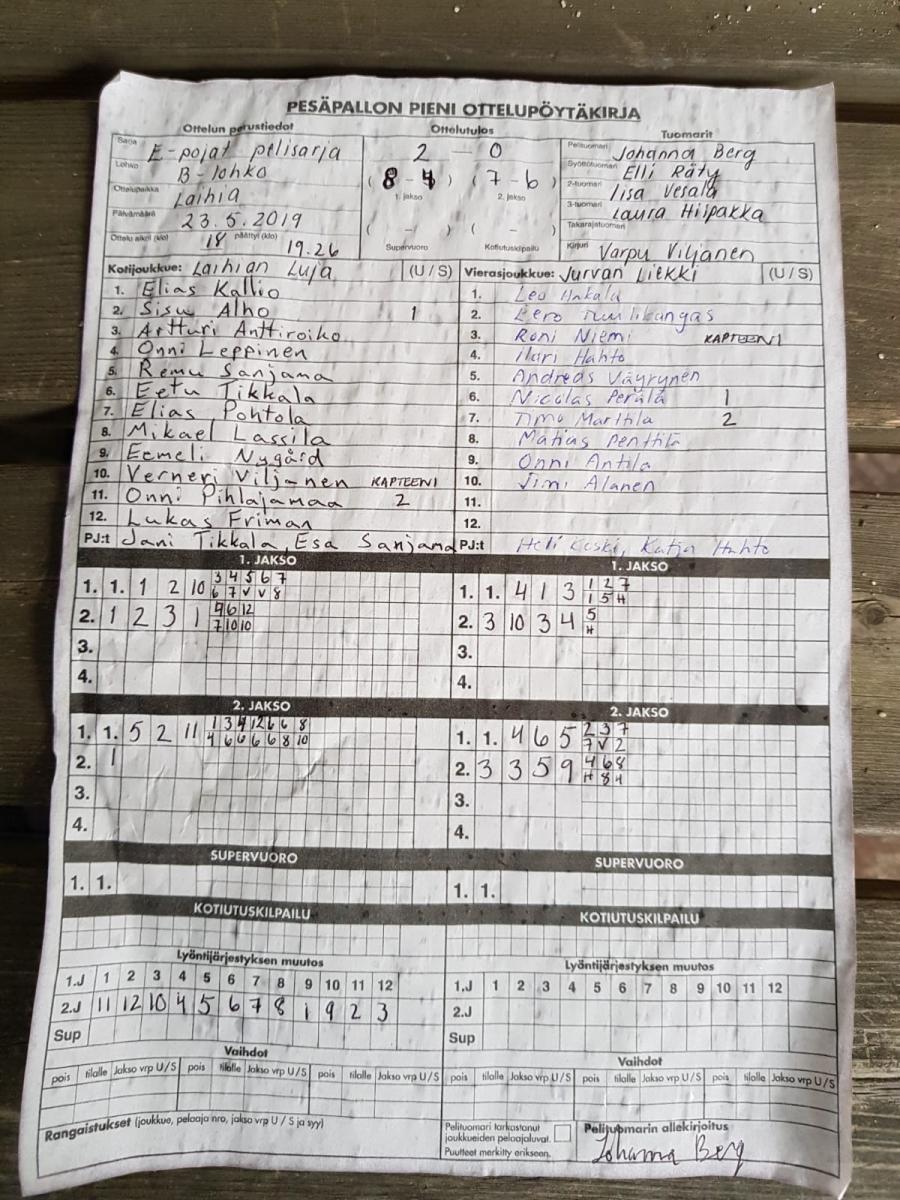 PESÄPALLON PIENI OTTELUPÖYTÄKIRJA
Ottelun perustiedot Ottelutulos Tuomarit
Sarja E-pojat pelisarja
Lohko B-lohko
Ottelupaikka Laihia
Päivämäärä 23.5.2019
Ottelu alkoi (klo) 18 päättyi (klo) 19.26
2 - 0
(8 - 4) (7 - 6)
1. jakso 2. jakso
( - ) ( - )
Supervuoro Kotiutuskilpailu
Pelituomari Johanna Berg
Syöttötuomari Elli Räty
2-tuomari Iisa Vesala
3-tuomari Laura Hilpakka
Takarajatuomari
Kirjuri Varpu Viljanen
Kotijoukkue: Laihian Luja (U / S)
1. Elias Kallio
2. Sisu Alho 1
3. Artturi Anttiroiko
4. Onni Leppinen
5. Remu Sanjama
6. Eetu Tikkala
7. Elias Pohtola
8. Mikael Lassila
9. Eemeli Nygård
10. Verneri Viljanen KAPTEENI
11. Onni Pihlajamaa 2
12. Lukas Friman
PJ:t Jani Tikkala, Esa Sanjama
Vierasjoukkue: Jurvan Liekki (U / S)
1. Leo Hakala
2. Eero Tuulikangas
3. Roni Niemi KAPTEENI
4. Ilari Hahto
5. Andreas Väyrynen
6. Nicolas Perälä 1
7. Timo Marttila 2
8. Matias Penttilä
9. Onni Antila
10. Jimi Alanen
11.
12.
PJ:t Heli Koski, Katja Hahto
1. JAKSO
1. 1. 1 2 10 3 4 5 6 7
6 7 V V 8
2. 1 2 3 1 4 6 12
7 10 10
3.
4.
1. JAKSO
1. 1. 4 1 3 1 2 7
1 5 H
2. 3 10 3 4 5
H
3.
4.
2. JAKSO
1. 1. 5 2 11 1 3 4 12 6 6 8
4 6 6 6 6 8 10
2. 1
3.
4.
2. JAKSO
1. 1. 4 6 5 2 3 7
7 V 2
2. 3 3 5 9 4 6 8
H 8 H
3.
4.
SUPERVUORO SUPERVUORO
1. 1. 1. 1.
KOTIUTUSKILPAILU KOTIUTUSKILPAILU
Lyöntijärjestyksen muutos
1.J 1 2 3 4 5 6 7 8 9 10 11 12
2.J 11 12 10 4 5 6 7 8 1 9 2 3
Sup
Lyöntijärjestyksen muutos
1.J 1 2 3 4 5 6 7 8 9 10 11 12
2.J
Sup
Vaihdot Vaihdot
pois tilalle Jakso vrp U/S pois tilalle Jakso vrp U/S pois tilalle Jakso vrp U/S
pois tilalle Jakso vrp U/S pois tilalle Jakso vrp U/S pois tilalle Jakso vrp U/S
Rangaistukset (joukkue, pelaaja nro, jakso vrp U / S ja syy)
Pelituomari tarkastanut
joukkueiden pelaajaluvat.
Puutteet merkitty erikseen.
Pelituomarin allekirjoitus
Johanna Berg